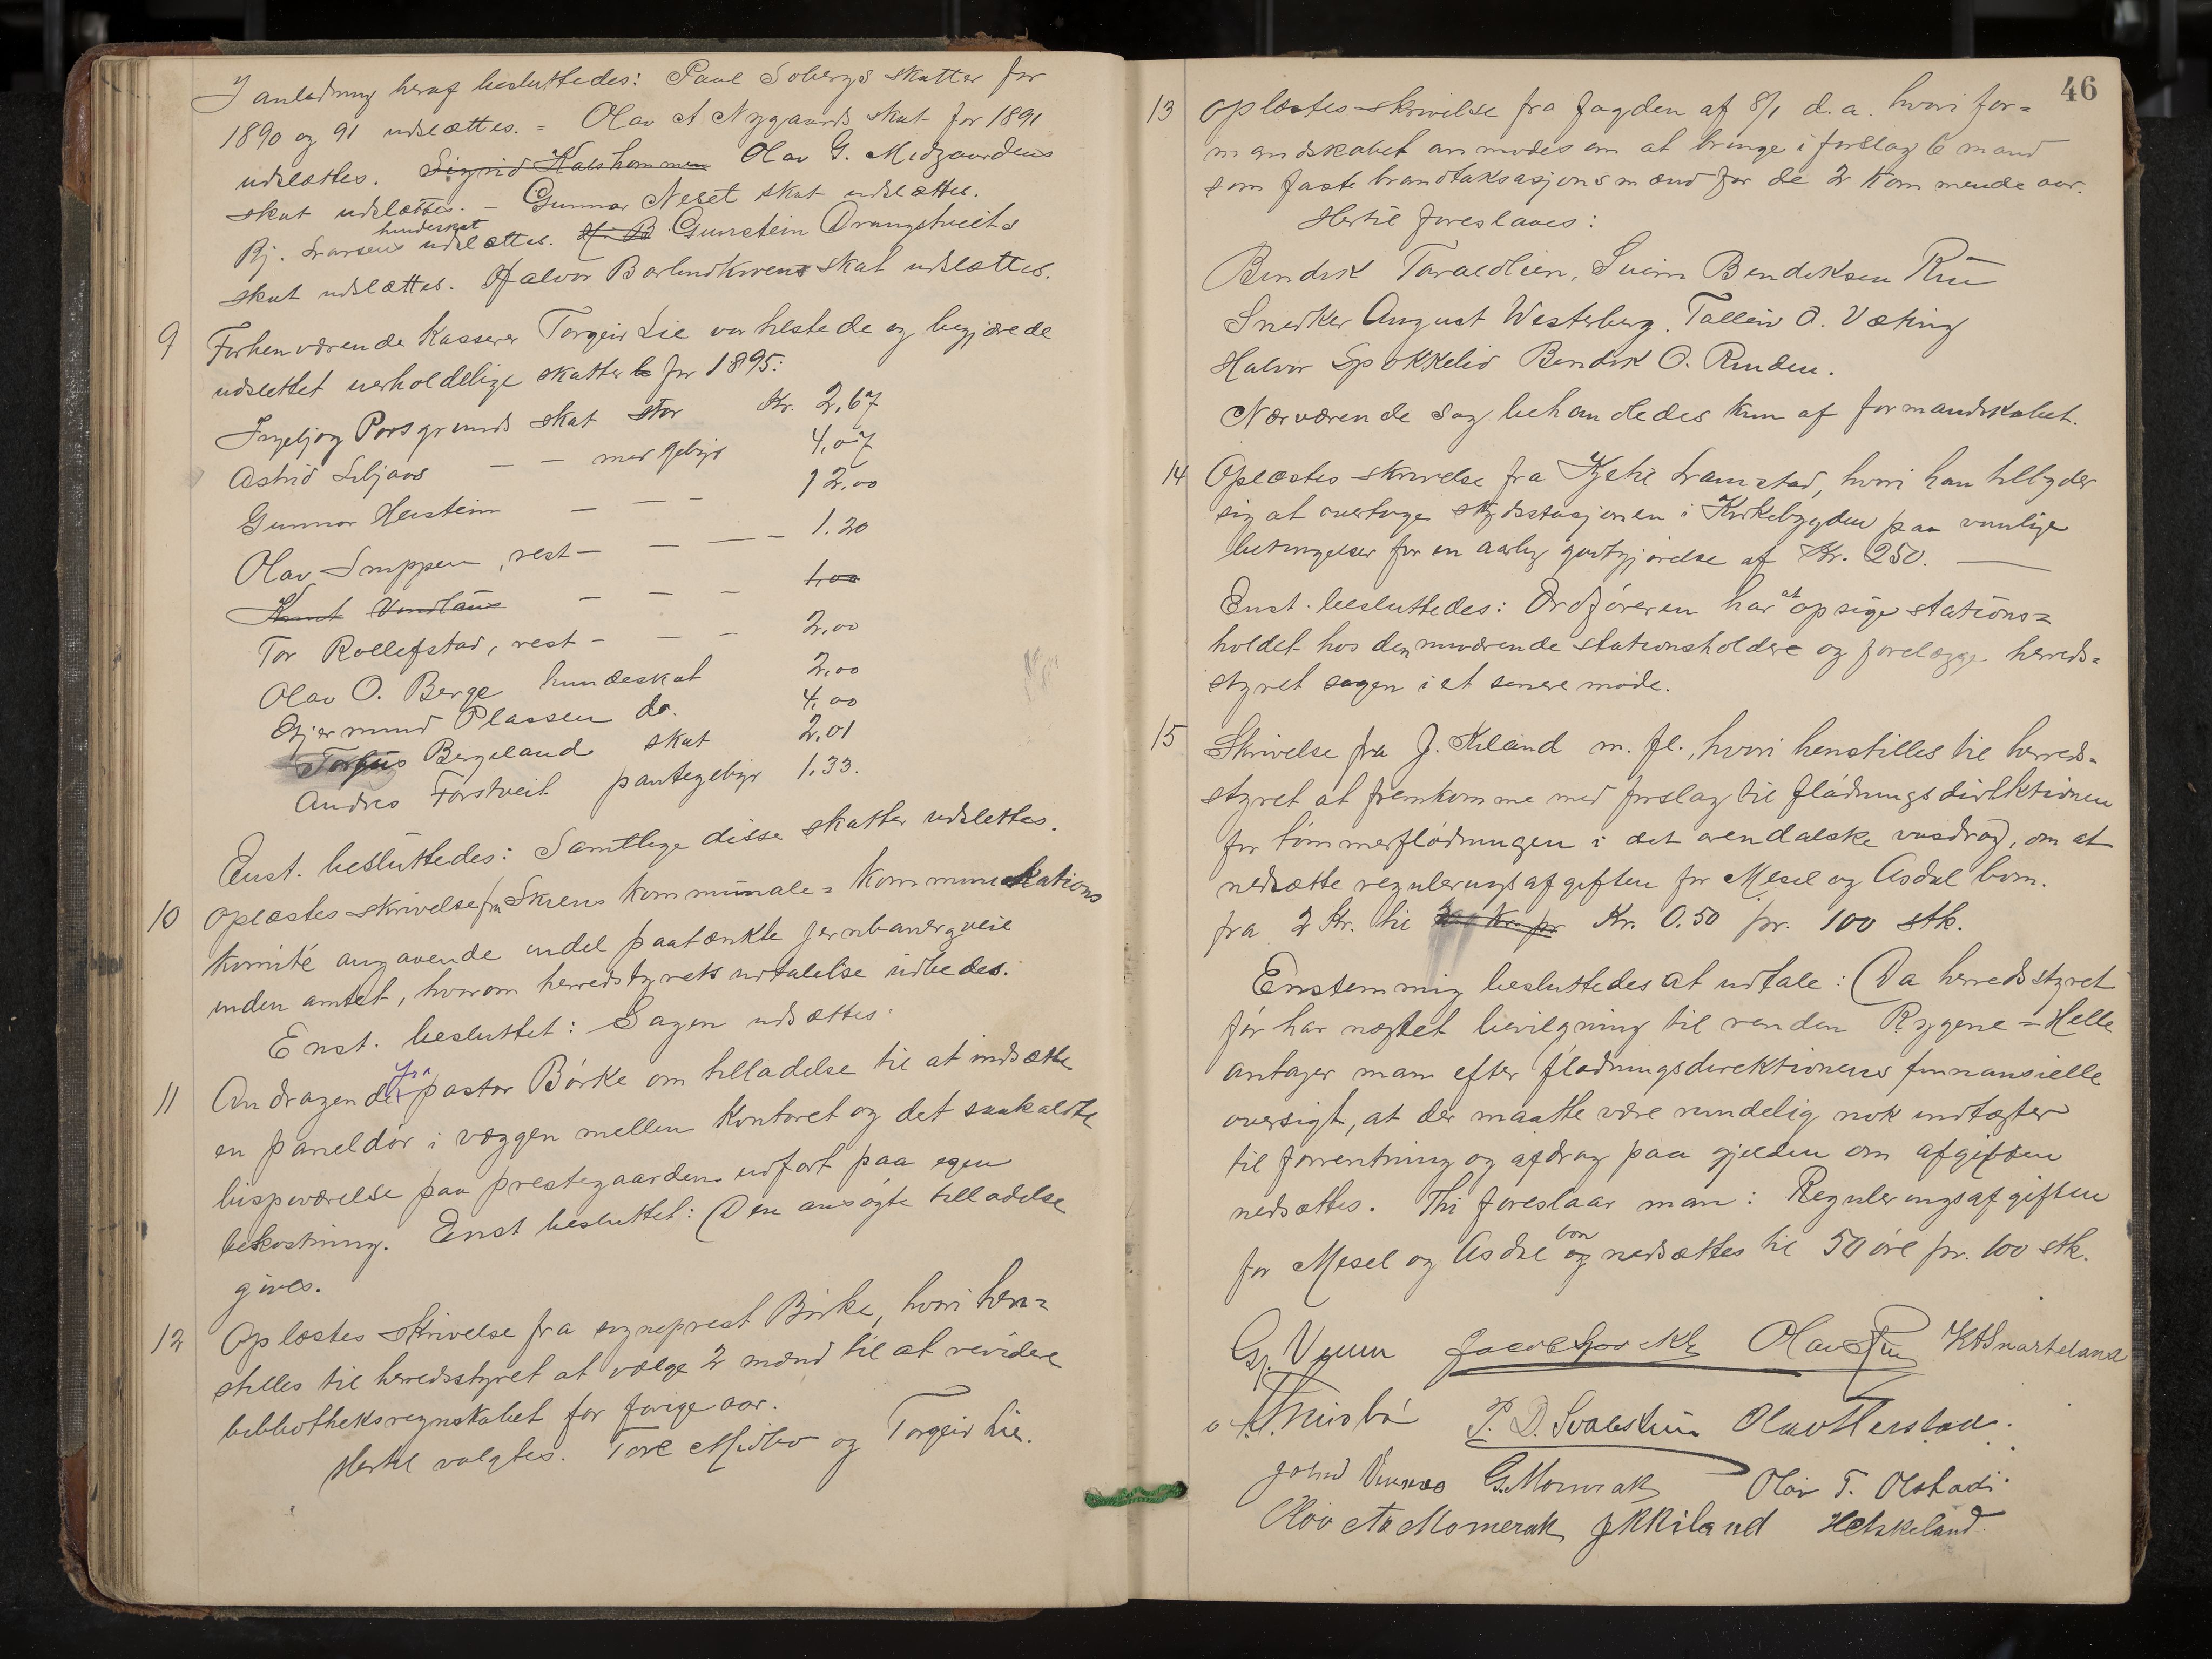 I anledning heraf besluttedes: Paul Sobergs skatter for
1890 og 91 udsættes. = Olav A Nygaards skat for 1891
udslættes. Sigrid Olav G. Midgaardens
skat udslættes. - Gunnar Neset skat udslættes.
hundeskat
Bj. Larsens udslættes. H. B Gunstein Drangstveits
skat udslættes. Halvor skat udslættes.
9 Forhenværende kasserer Torgeir Lie var tilstede og begjærede
udslettet uerholdelige skatter for 1895:
Ingebjørg Porsgrunds skat stor Kr. 2,67
Astrid Liljaas — — med gebyr 4,07
Gunnar Heistein — — - 12,00
Olav , rest — — — - 1.20
Knut — — — 1,00
Tor Rollefstad, rest — — — 2,00
Olav O. Berge hundeskat 2,00
Gjermund Plassen do. 4,00
Torjus Bergeland skat 2,01
Andres Førstveit pantegebyr 1.33.
Enst. besluttedes: Samtlige disse skatter udslettes.
10 Oplæstes skrivelse fra Skiens kommunale = kommunikations
komité angaaende endel paatænkte jernbaner og veie
inden amtet, hvorom herredstyrets udtalelse udbedes.
Enst. besluttet: Sagen udsættes.
fra
11 Andragende pastor Börke om tilladelse til at indsætte
en paneldör i væggen mellem kontoret og det saakaldte
bispeværelse paa prestegaarden udfört paa egen
bekostning. Enst besluttet: Den ansögte tilladelse
gives.
12 Oplæstes skrivelse fra sogneprest Börke, hvori hen=
stilles til herredsstyret at vælge 2 mænd til at revidere
bibliotheksregnskabet for forige aar.
Hertil valgtes. Tore Midbö og Torgeir Lie.
46
13 Oplæstes skrivelse fra fogden af 8/1 d.a. hvori for=
mandskabet anmodes om at bringe i forslag 6 mand
som faste brandtaksasjonsmænd for de 2 kommende aar.
Hertil foreslaaes:
Bendik Taraldlien, Svein Bendiksen Rui
Snedker August Westerberg. Talleiv O. Væting
Halvor Spokkelid Bendik O. Runden.
Nærværende sag behandledes kun af formandskabet.
14 Oplæstes skrivelse fra Kjetil Tramstad, hvori han tilbyder
sig at overtage skydsstasjonen i Kirkebygden paa vanlige
betingelser for en aarlig godtgjørelse af Kr. 250. —
at
Enst. besluttedes: Ordføreren har opsige stations=
holdet hos den nuværende stationsholdere og forelægge herreds=
styret sagen i et senere möde.
15 Skrivelse fra J. Kiland m. fl., hvori henstilles til herreds=
styret at fremkomme med forslag til flödningsdirektionen
for tömmerflödningen i det arendalske vasdrag, om at
nedsætte reguleringsafgiften for Mesel og Asdal bom.
fra 2 Kr. til Kr. pr Kr. 0.50 pr. 100 stk.
Enstemmig besluttedes at udtale: Da herredsstyret
för har nægtet bevilgning til renden Rygene = Helle
antager man efter flödningsdirektionens finnansielle
oversigt, at der maatte være rundelig nok indtægter
til forrentning og afdrag paa gjelden om afgiften
nedsættes. Thi foreslaar man: Reguleringsafgiften
bom
for Mesel og Asdal og nedsættes til 50 öre pr. 100 stk.
Gj. Vinn Olav Rui K A Snarteland
P. D. Svalestuen Olav Herstad.
John Vinnes G. Momrak Olav T. Olstad.
Olav Aa Momrak J K Kiland H Askeland